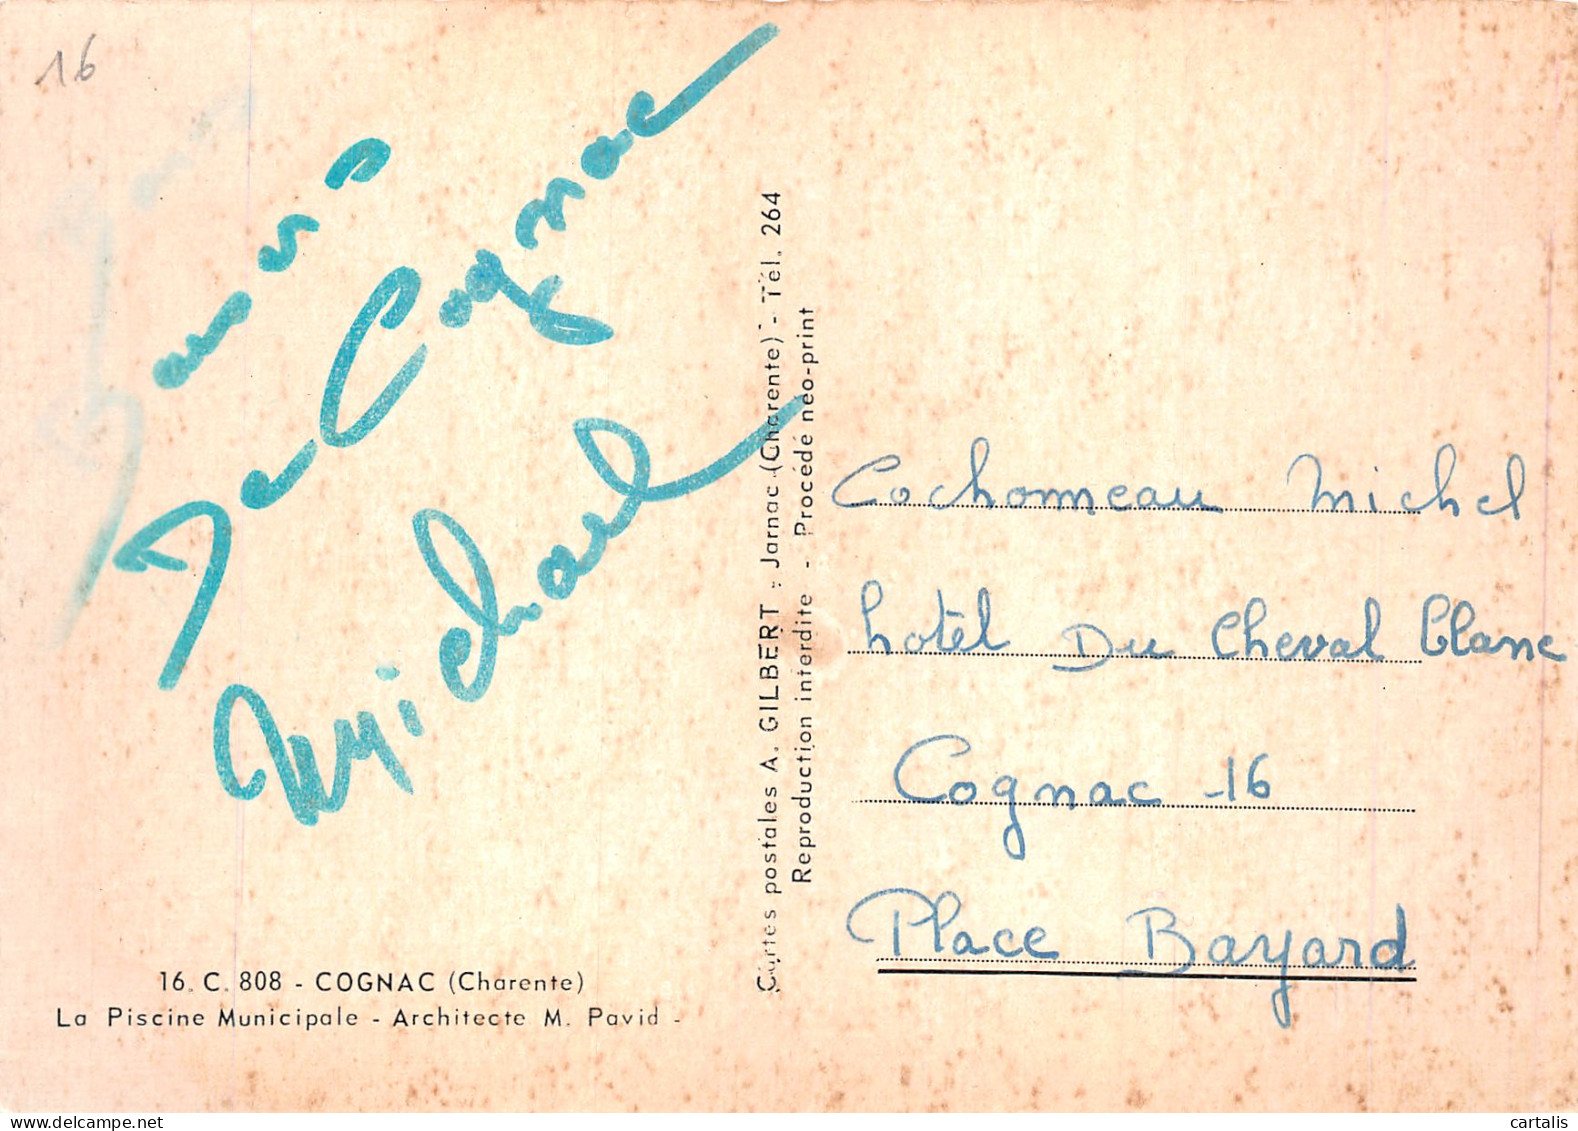 16
De Cognac
Michael
16. C. 808 - COGNAC (Charente)
La Piscine Municipale - Architecte M. Pavid -
Cartes postales A. GILBERT : Jarnac (Charente) - Tél. 264
Reproduction interdite - Procédé néo-print
Cochonneau Michel
hotêl Du Cheval blanc
Cognac -16
Place Bayard
cartalis